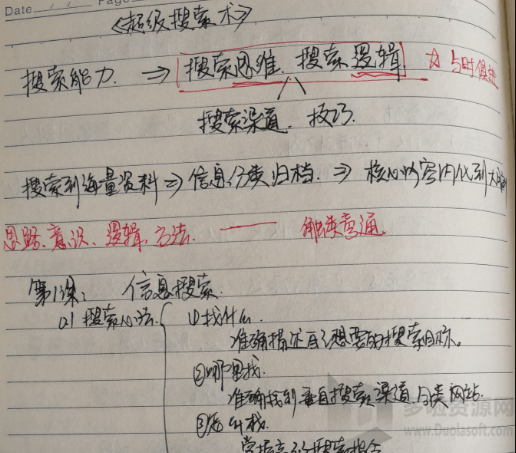 Date
Page
《超级搜索术》
搜索能力 ⇒ 搜索思维 搜索逻辑 ☆ 与时俱进
搜索渠道、技巧
搜索到海量资料 ⇒ 信息分类归档 ⇒ 核心内容内化到大脑
思路、意识、逻辑、方法 —— 融会贯通
第1课: 信息搜索
01 搜索心法
①找什么
准确描述自己想要的搜索目标。
②哪里找
准确找到垂直搜索渠道、分类网站
③怎么找
掌握高效搜索指令
多啦资源网
www.Duolasoft.com